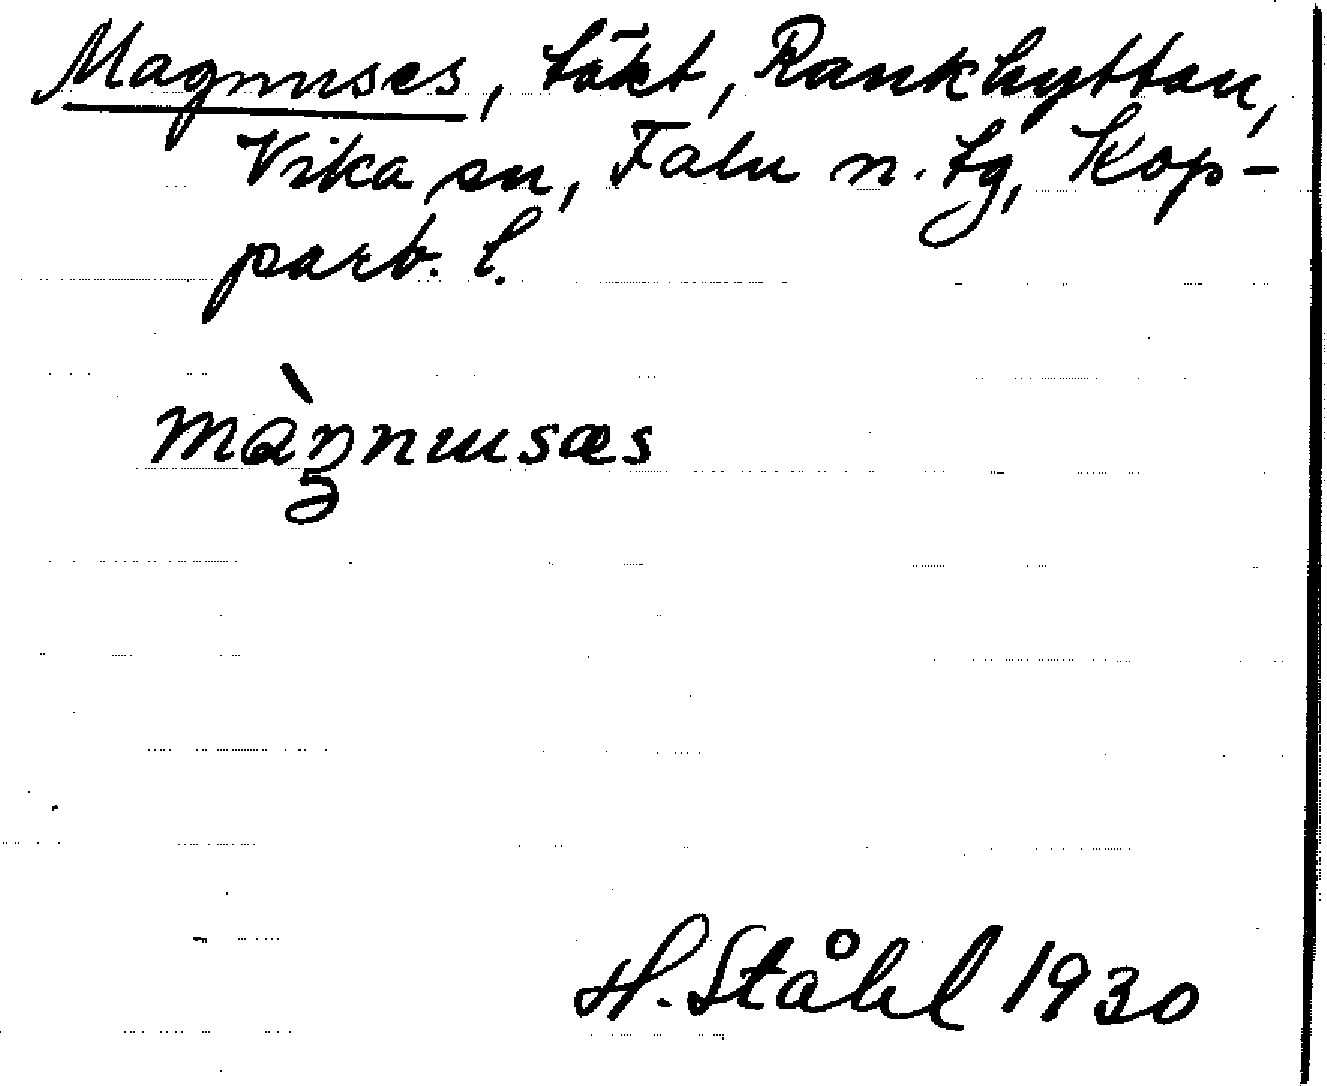 Magnuses, täkt, Rankhyttan,
Vika sn, Falu n. tg, Kop-
parb. l.
màŋnusæs
H. Ståhl 1930